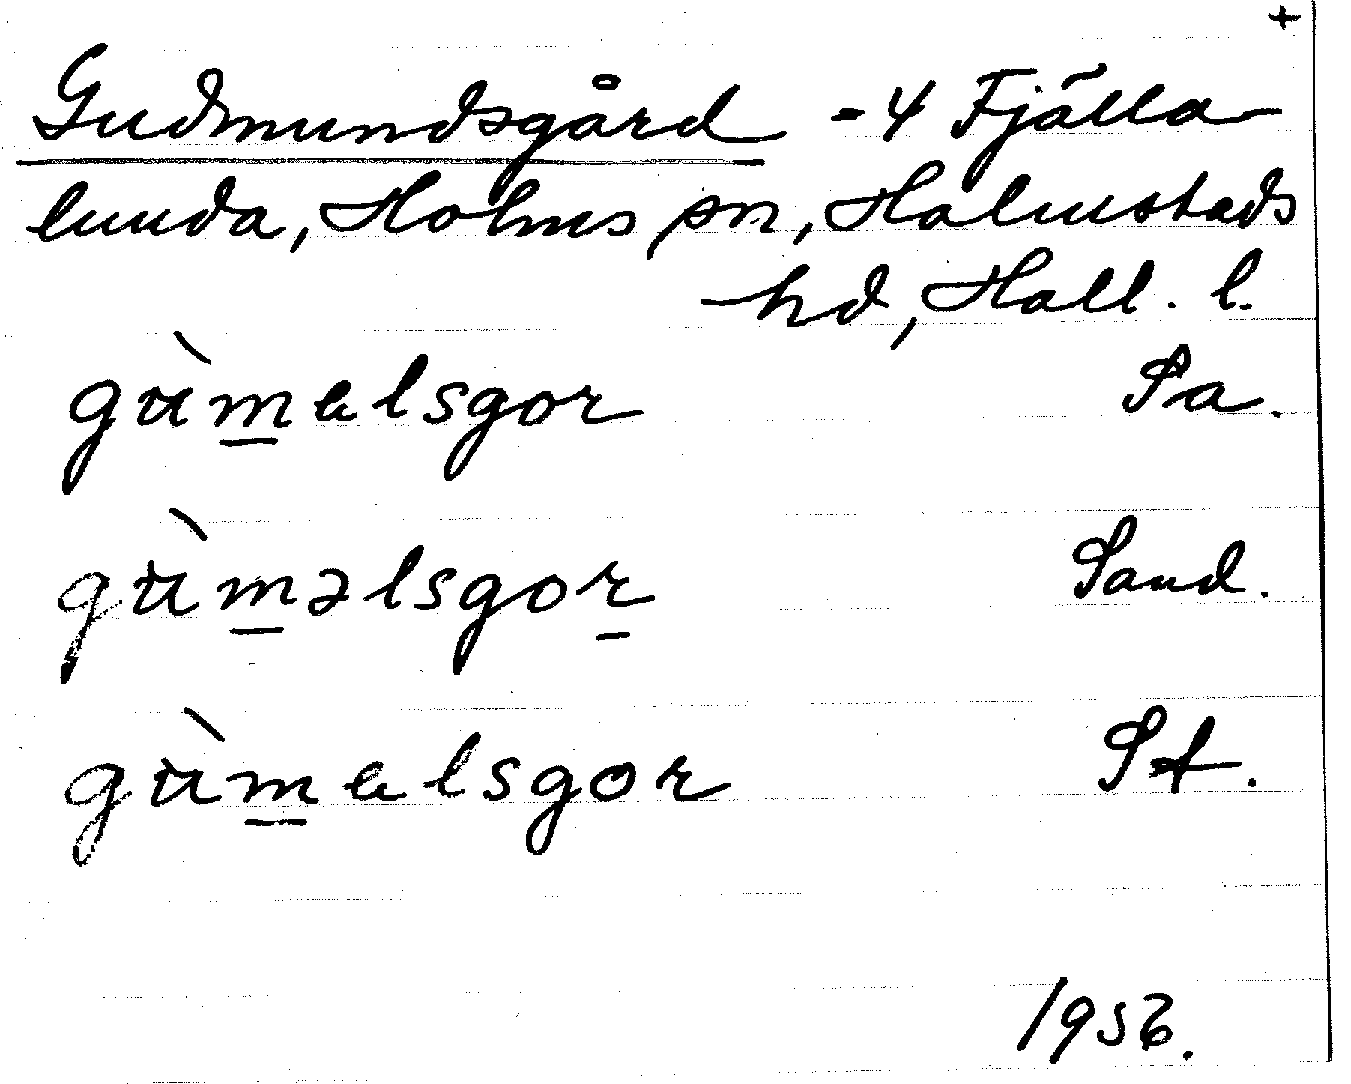 +
Gudmundsgård -4 Fjälla
lunda, Holms sn, Halmstads
hd, Hall. l.
gùmalsgor Pa.
gùməlsgor Sand.
gùmalsgor St.
1956.